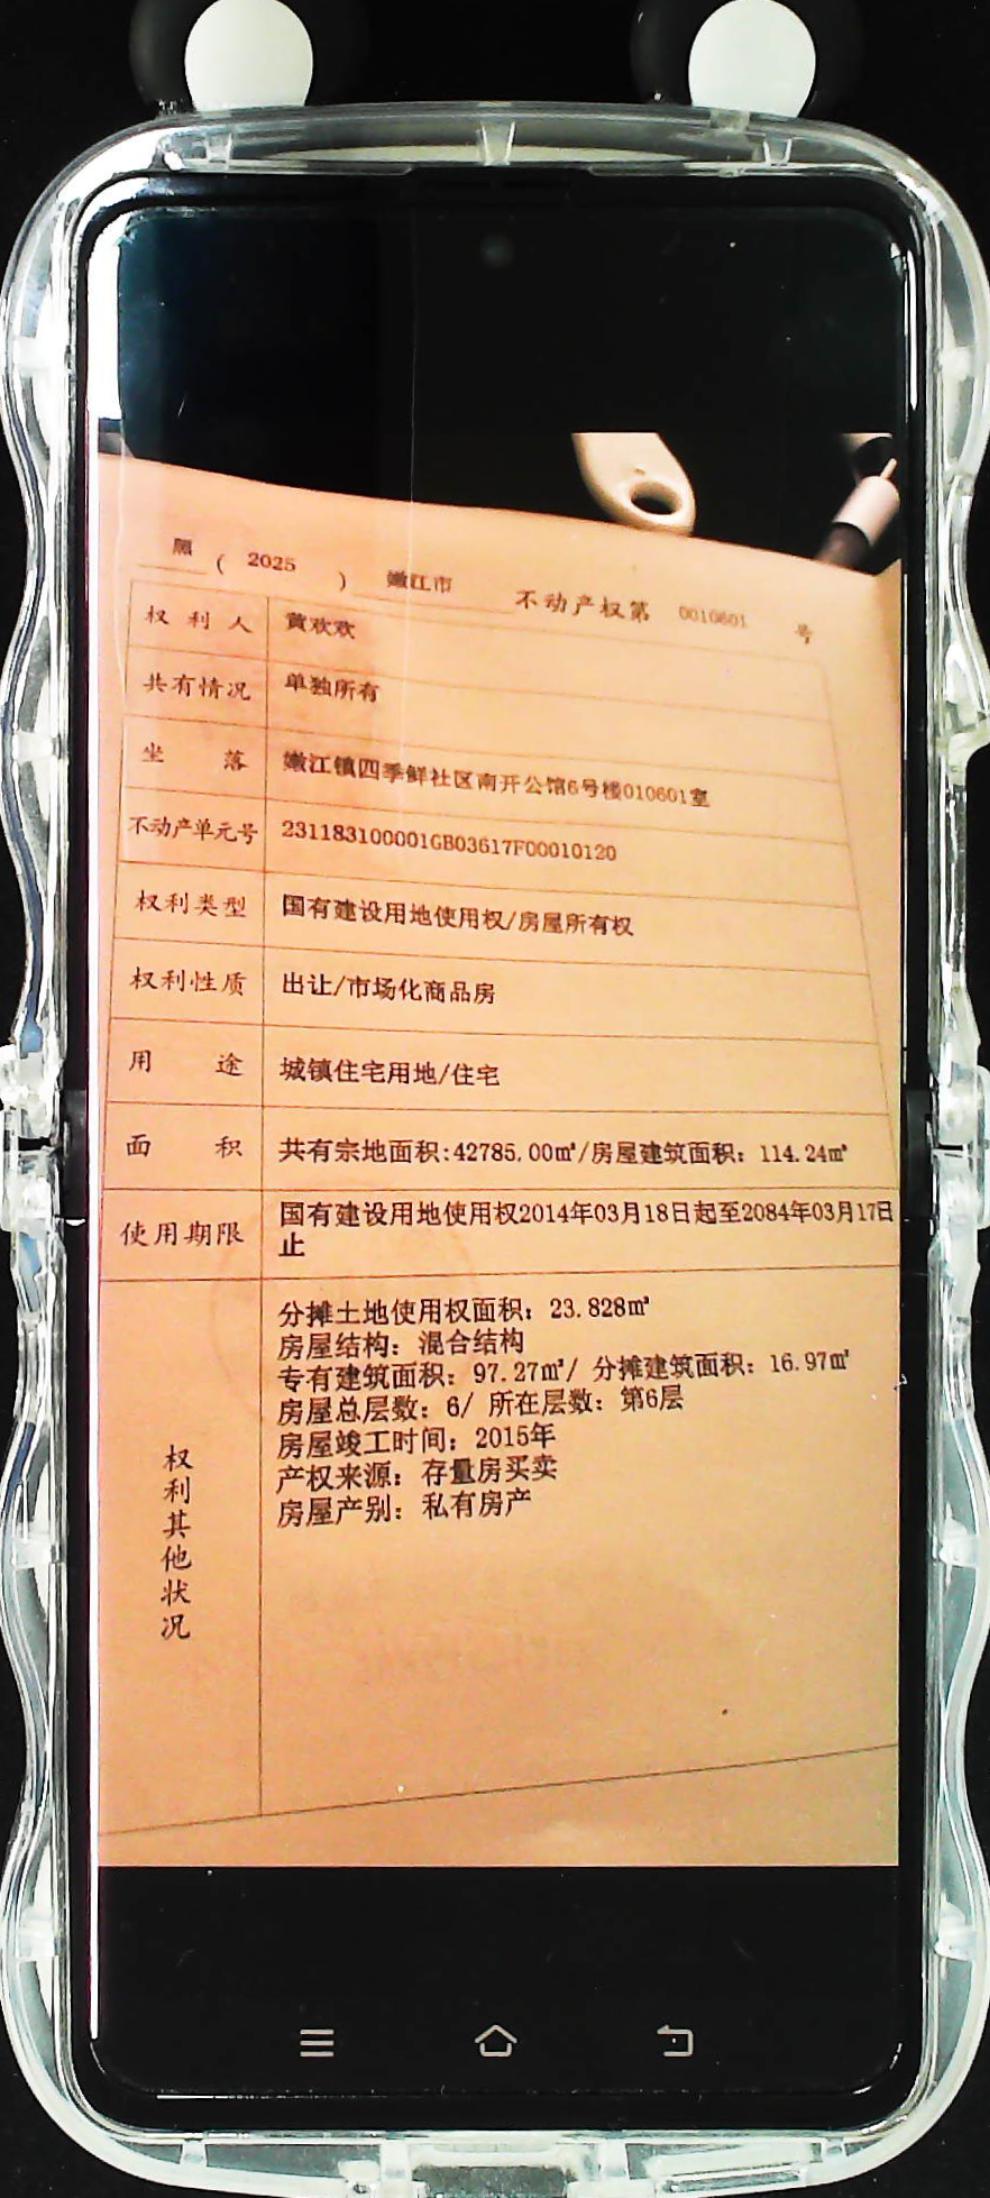 黑 ( 2025 ) 嫩江市 不动产权第 0010601 号
权利人 黄欢欢
共有情况 单独所有
坐落 嫩江镇四季鲜社区南开公馆6号楼010601室
不动产单元号 231183100001GB03617F00010120
权利类型 国有建设用地使用权/房屋所有权
权利性质 出让/市场化商品房
用途 城镇住宅用地/住宅
面积 共有宗地面积:42785.00㎡/房屋建筑面积：114.24㎡
使用期限 国有建设用地使用权2014年03月18日起至2084年03月17日
止
权利其他状况
分摊土地使用权面积：23.828㎡
房屋结构：混合结构
专有建筑面积：97.27㎡/ 分摊建筑面积：16.97㎡
房屋总层数：6/ 所在层数：第6层
房屋竣工时间：2015年
产权来源：存量房买卖
房屋产别：私有房产